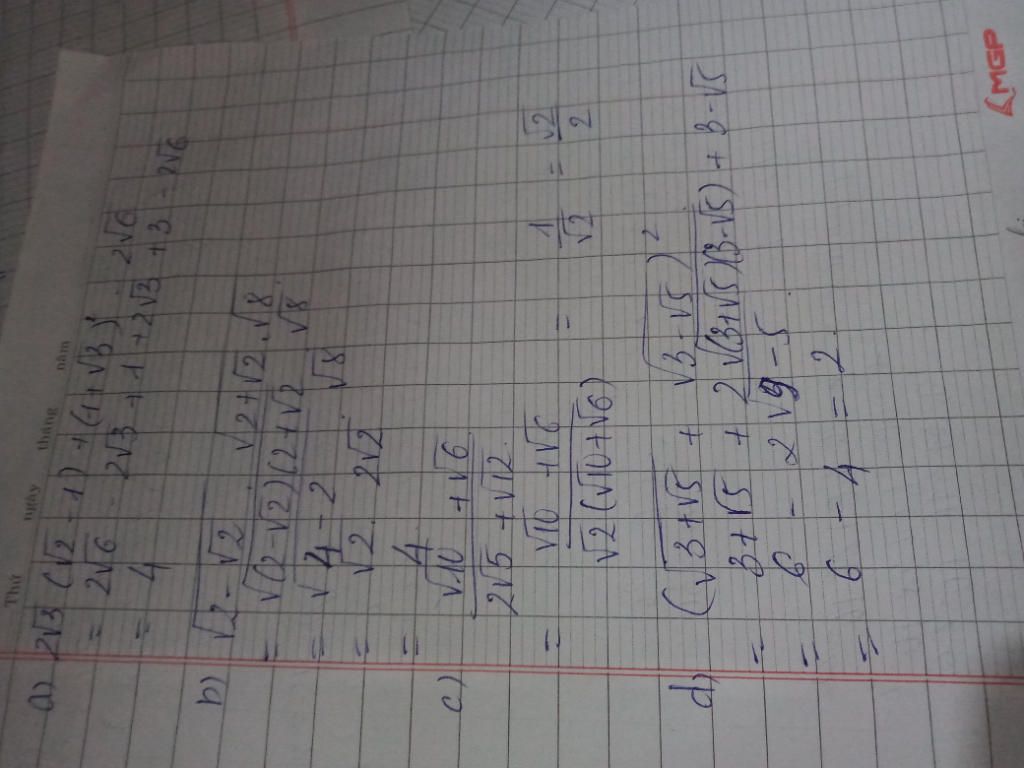 Thứ ngày tháng năm
a) 2√3 (√2 - 1) + (1 + √3)² - 2√6
= 2√6 - 2√3 + 1 + 2√3 + 3 - 2√6
= 4
b) √2 - √2 . √2 + √2 . √8
= √(2 - √2)(2 + √2 . √8
= √4 - 2 . √8
= √2 . 2√2
= 4
c) √10 + √6
2√5 + √12
= √10 + √6 = 1 = √2
√2 (√10 + √6) √2 2
d) (√3 + √5 + √3 - √5)²
= 3 + √5 + 2√(3 + √5)(3 - √5) + 3 - √5
= 6 - 2√9 - 5
= 6 - 4 = 2
MGP